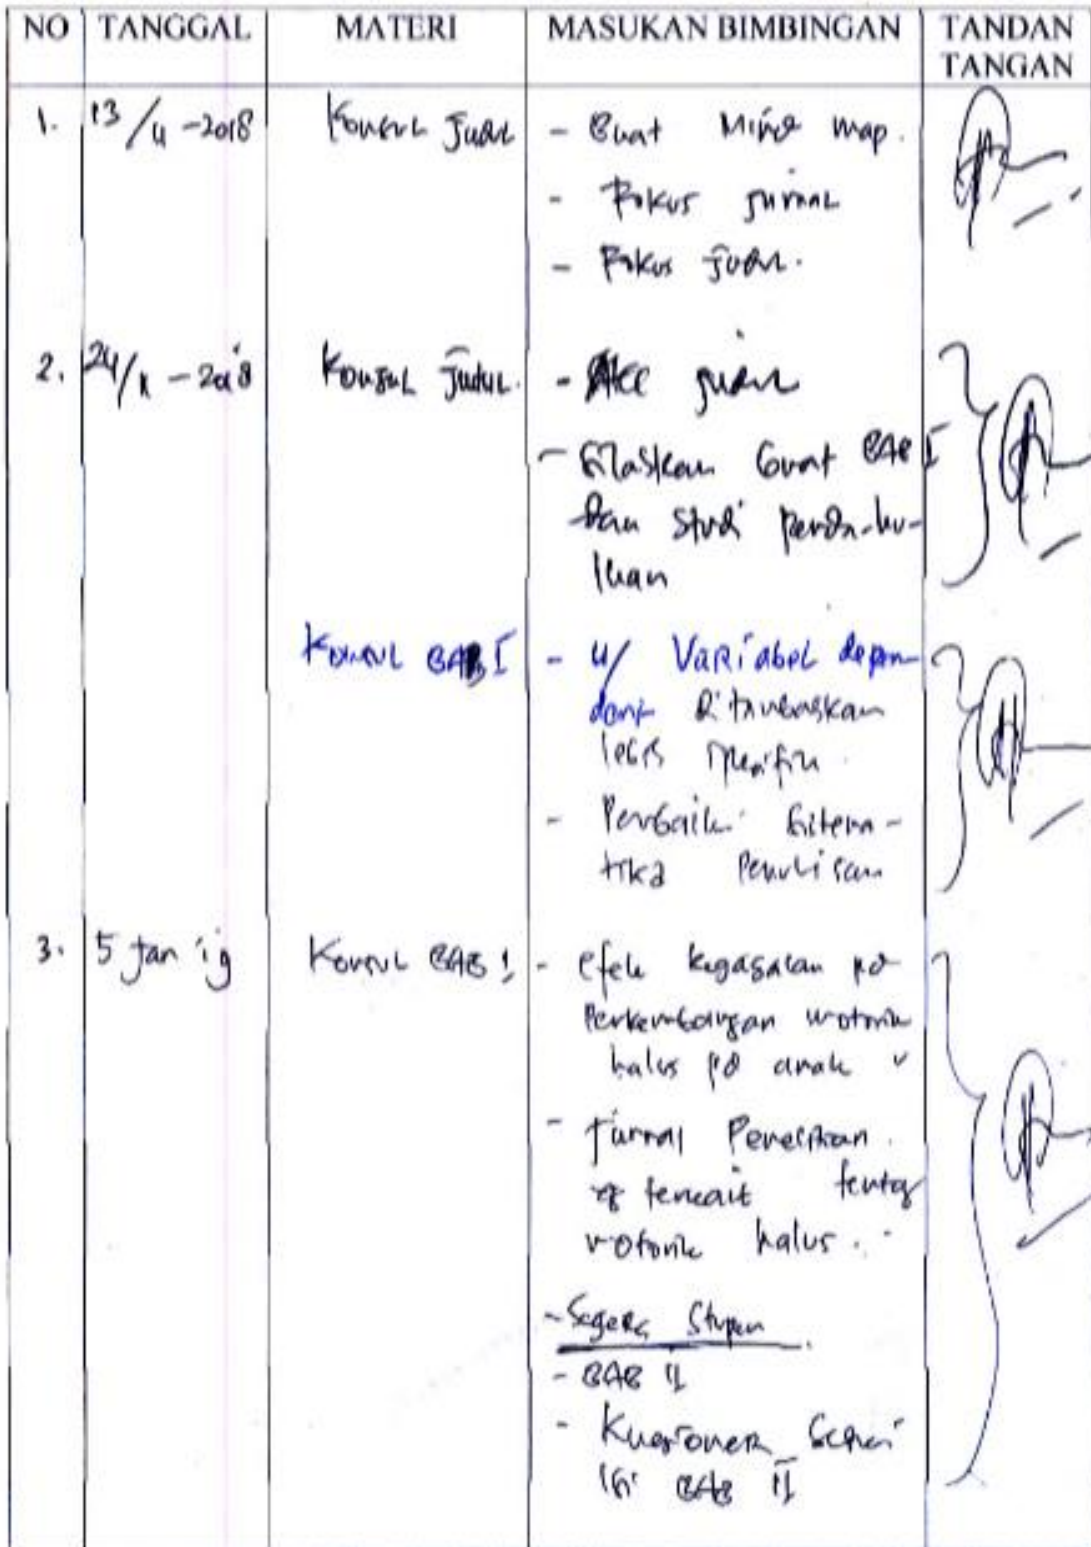 NO TANGGAL MATERI MASUKAN BIMBINGAN TANDAN
TANGAN
1. 13/4-2018 Konsul Judul - Buat Mind map.
- Fokus jurnal
- Fokus judul.
2. 24/ -2018 Konsul Judul. - Acc judul
- Silaskan buat BAB I
dan studi pendahu-
luan
Konsul BAB I - u/ Variabel depen-
dent
lebih spesifik.
- Perbaiki sistema-
tika Penulisan
3. 5 Jan Konsul BAB 1 - efek kegagalan pd
Perkembangan motorik
halus pd anak
- Jurnal Penelitian
yg terkait tentg
motorik halus.
- Segera Stupen
- BAB II
- Kuesioner sesuai
isi BAB II